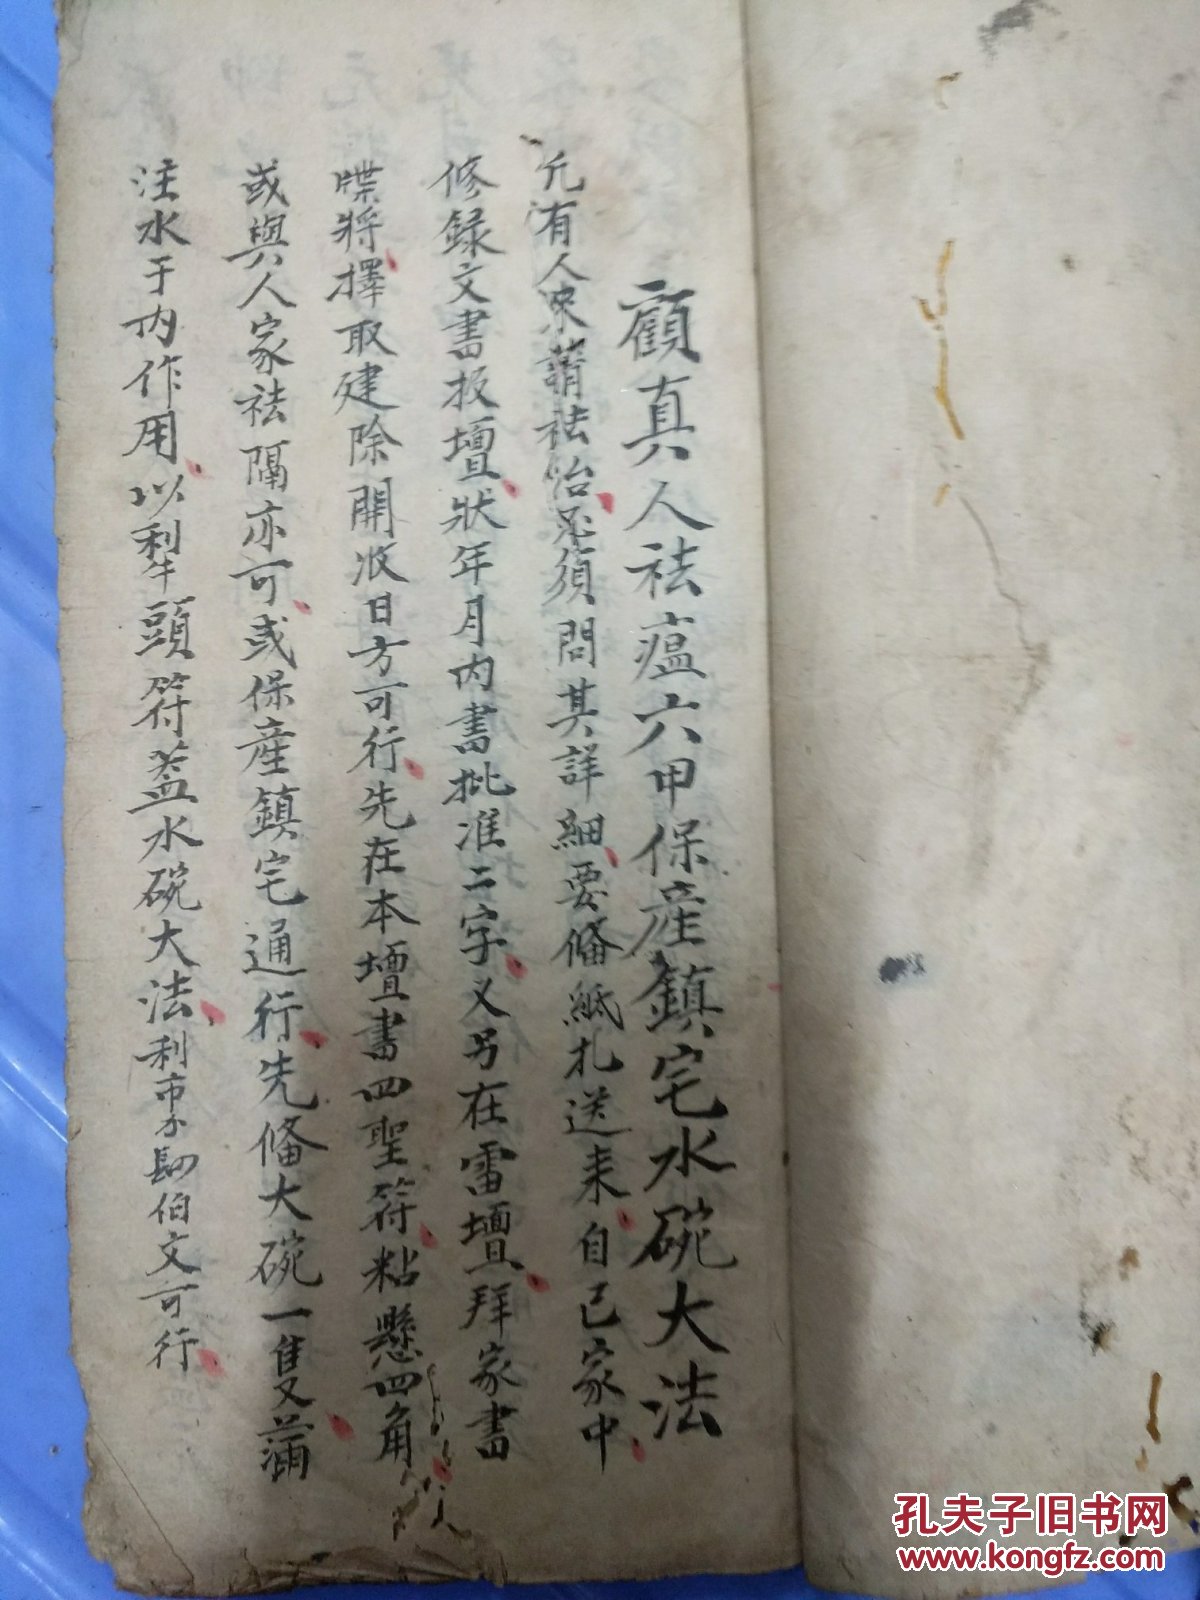 顧真人祛瘟六甲保產鎮宅水碗大法
凡有人來請祛治必須問其詳細要俻紙札送来自己家中
修録文書投壇狀年月內書批准二字又另在雷壇拜家書
牒將擇取建除開收日方可行先在本壇書四聖符粘懸四角
或與人家祛隔亦可或保產鎮宅通行先俻大碗一隻滿
注水于內作用以犁頭符蓋水碗大法利市不伯文可行
孔夫子旧书网
www.kongfz.com